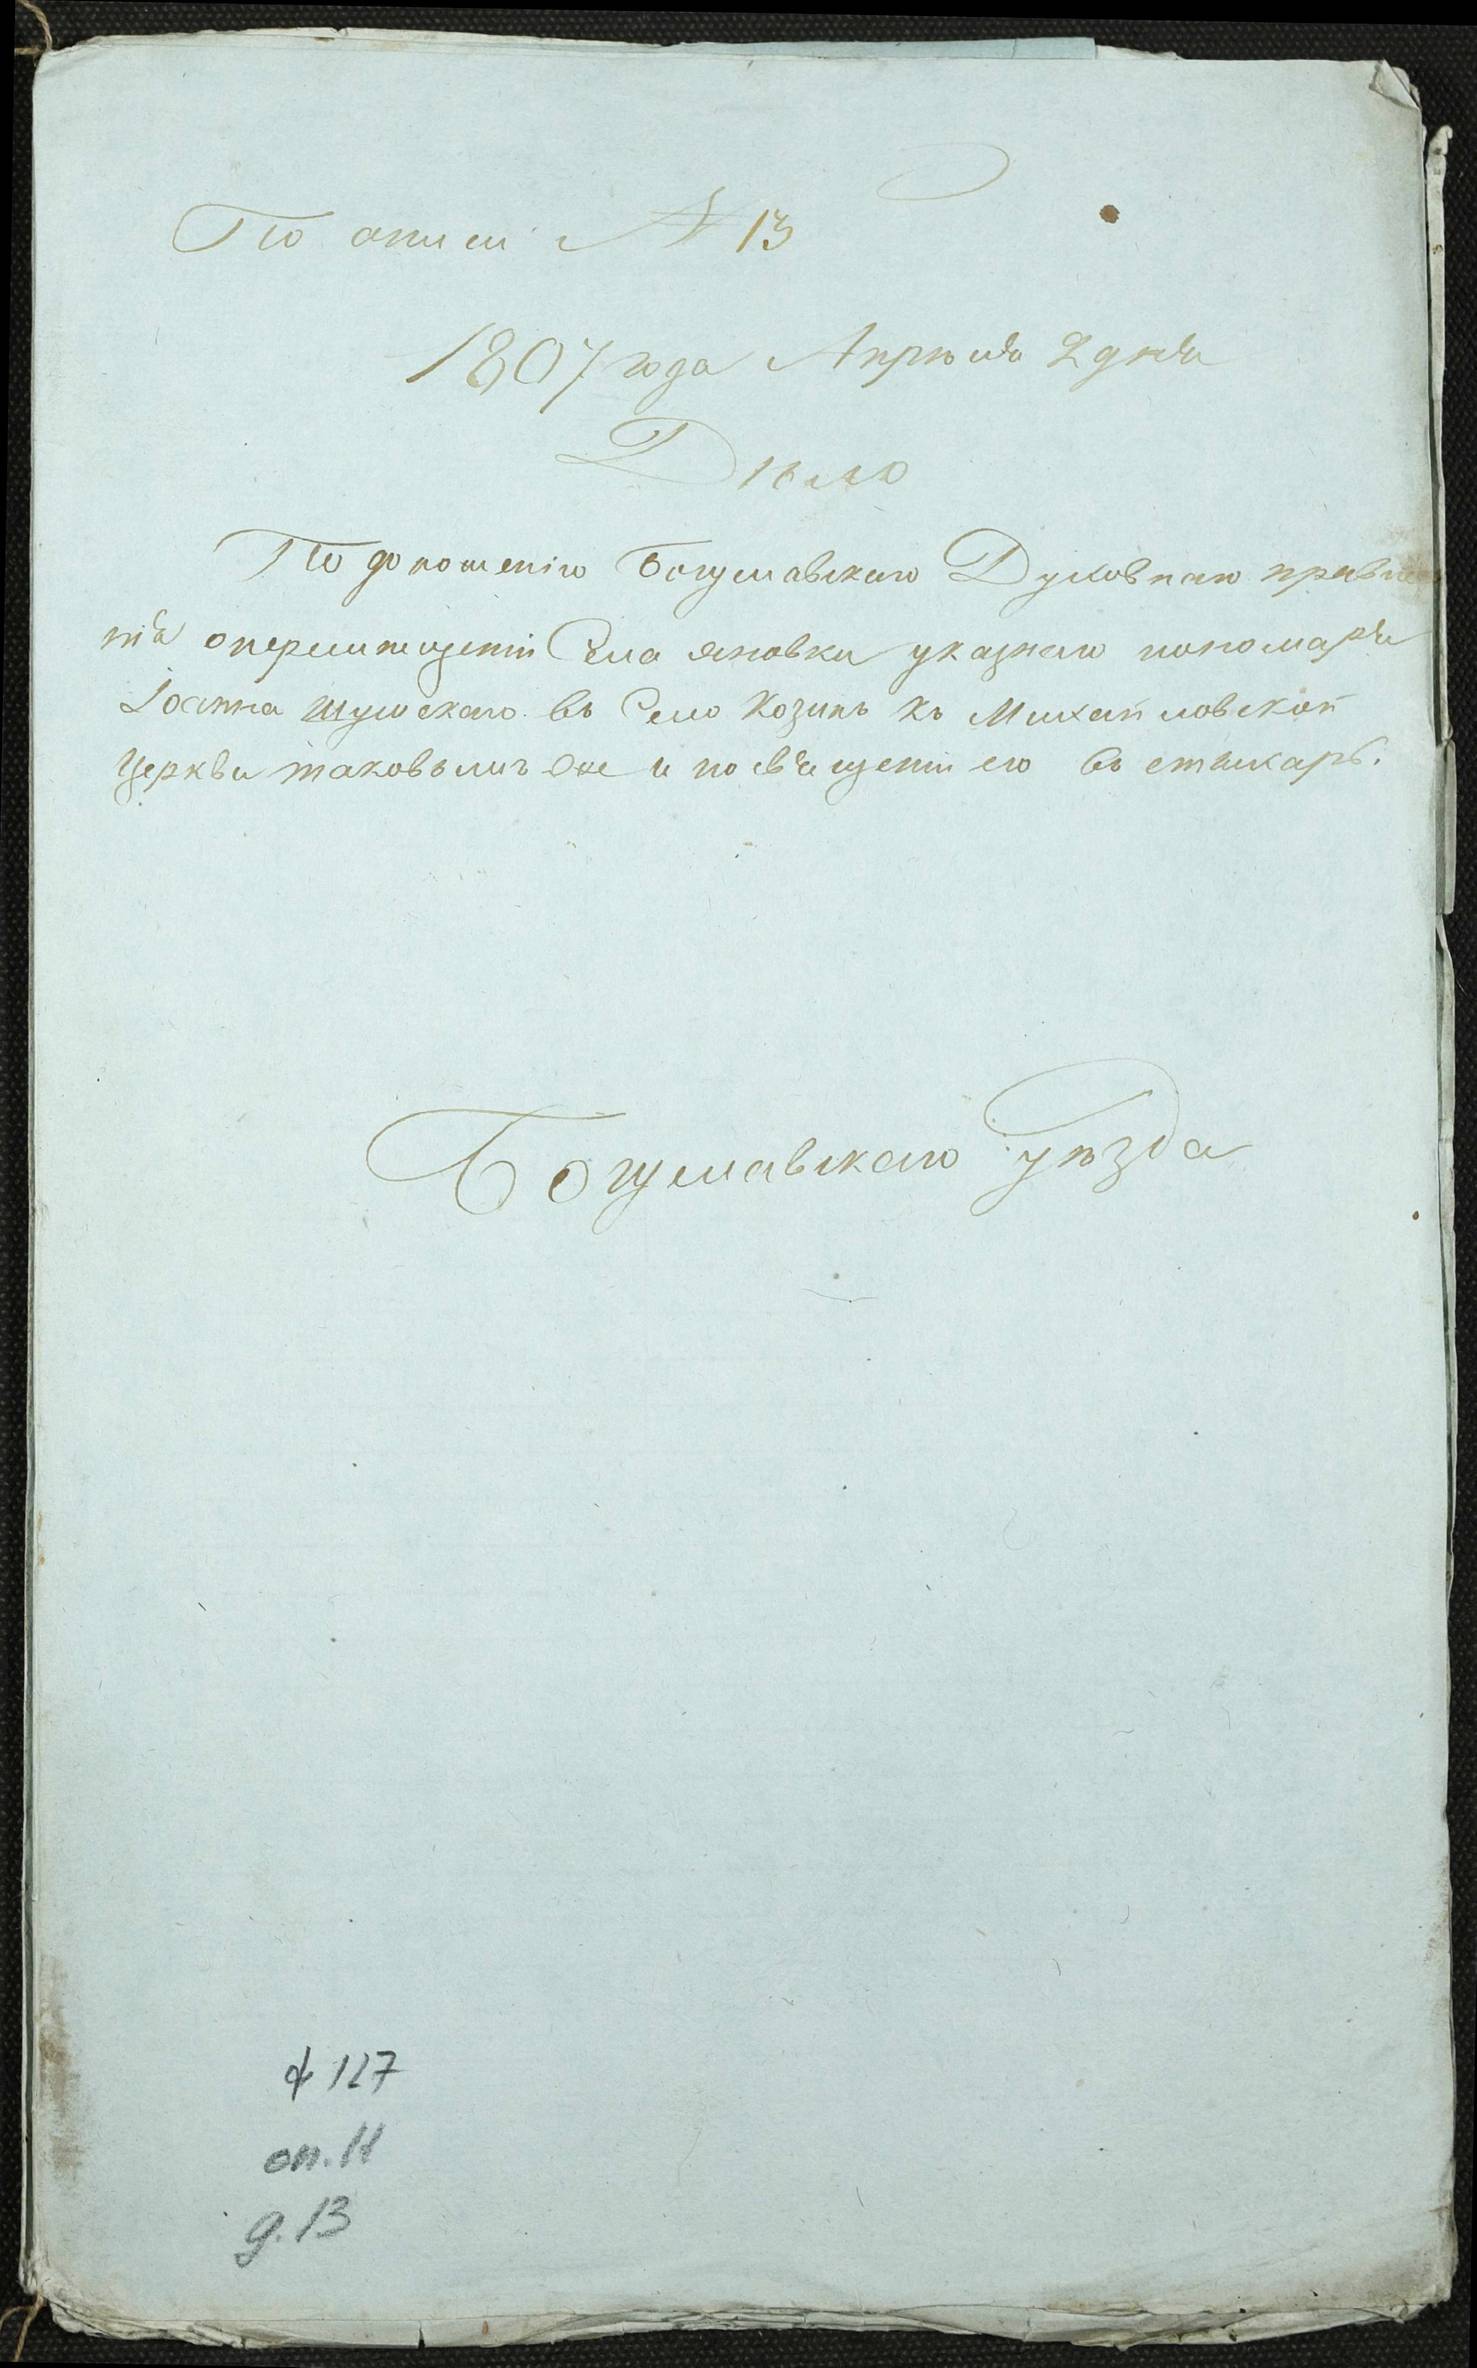 По описи № 13
1807 года Апрѣля 2 дня
Дѣло
По доношенію Богуславскаго Духовнаго правле
нія оперемищеніи Села яновки указнаго пономаря
Іоанна шумскаго въ Село Козинъ къ Михайловской
Церкви таковымъ же и посвященіи его въ стихарь.
Богуславскаго уѣзда
ф 127
оп. 11
д. 13